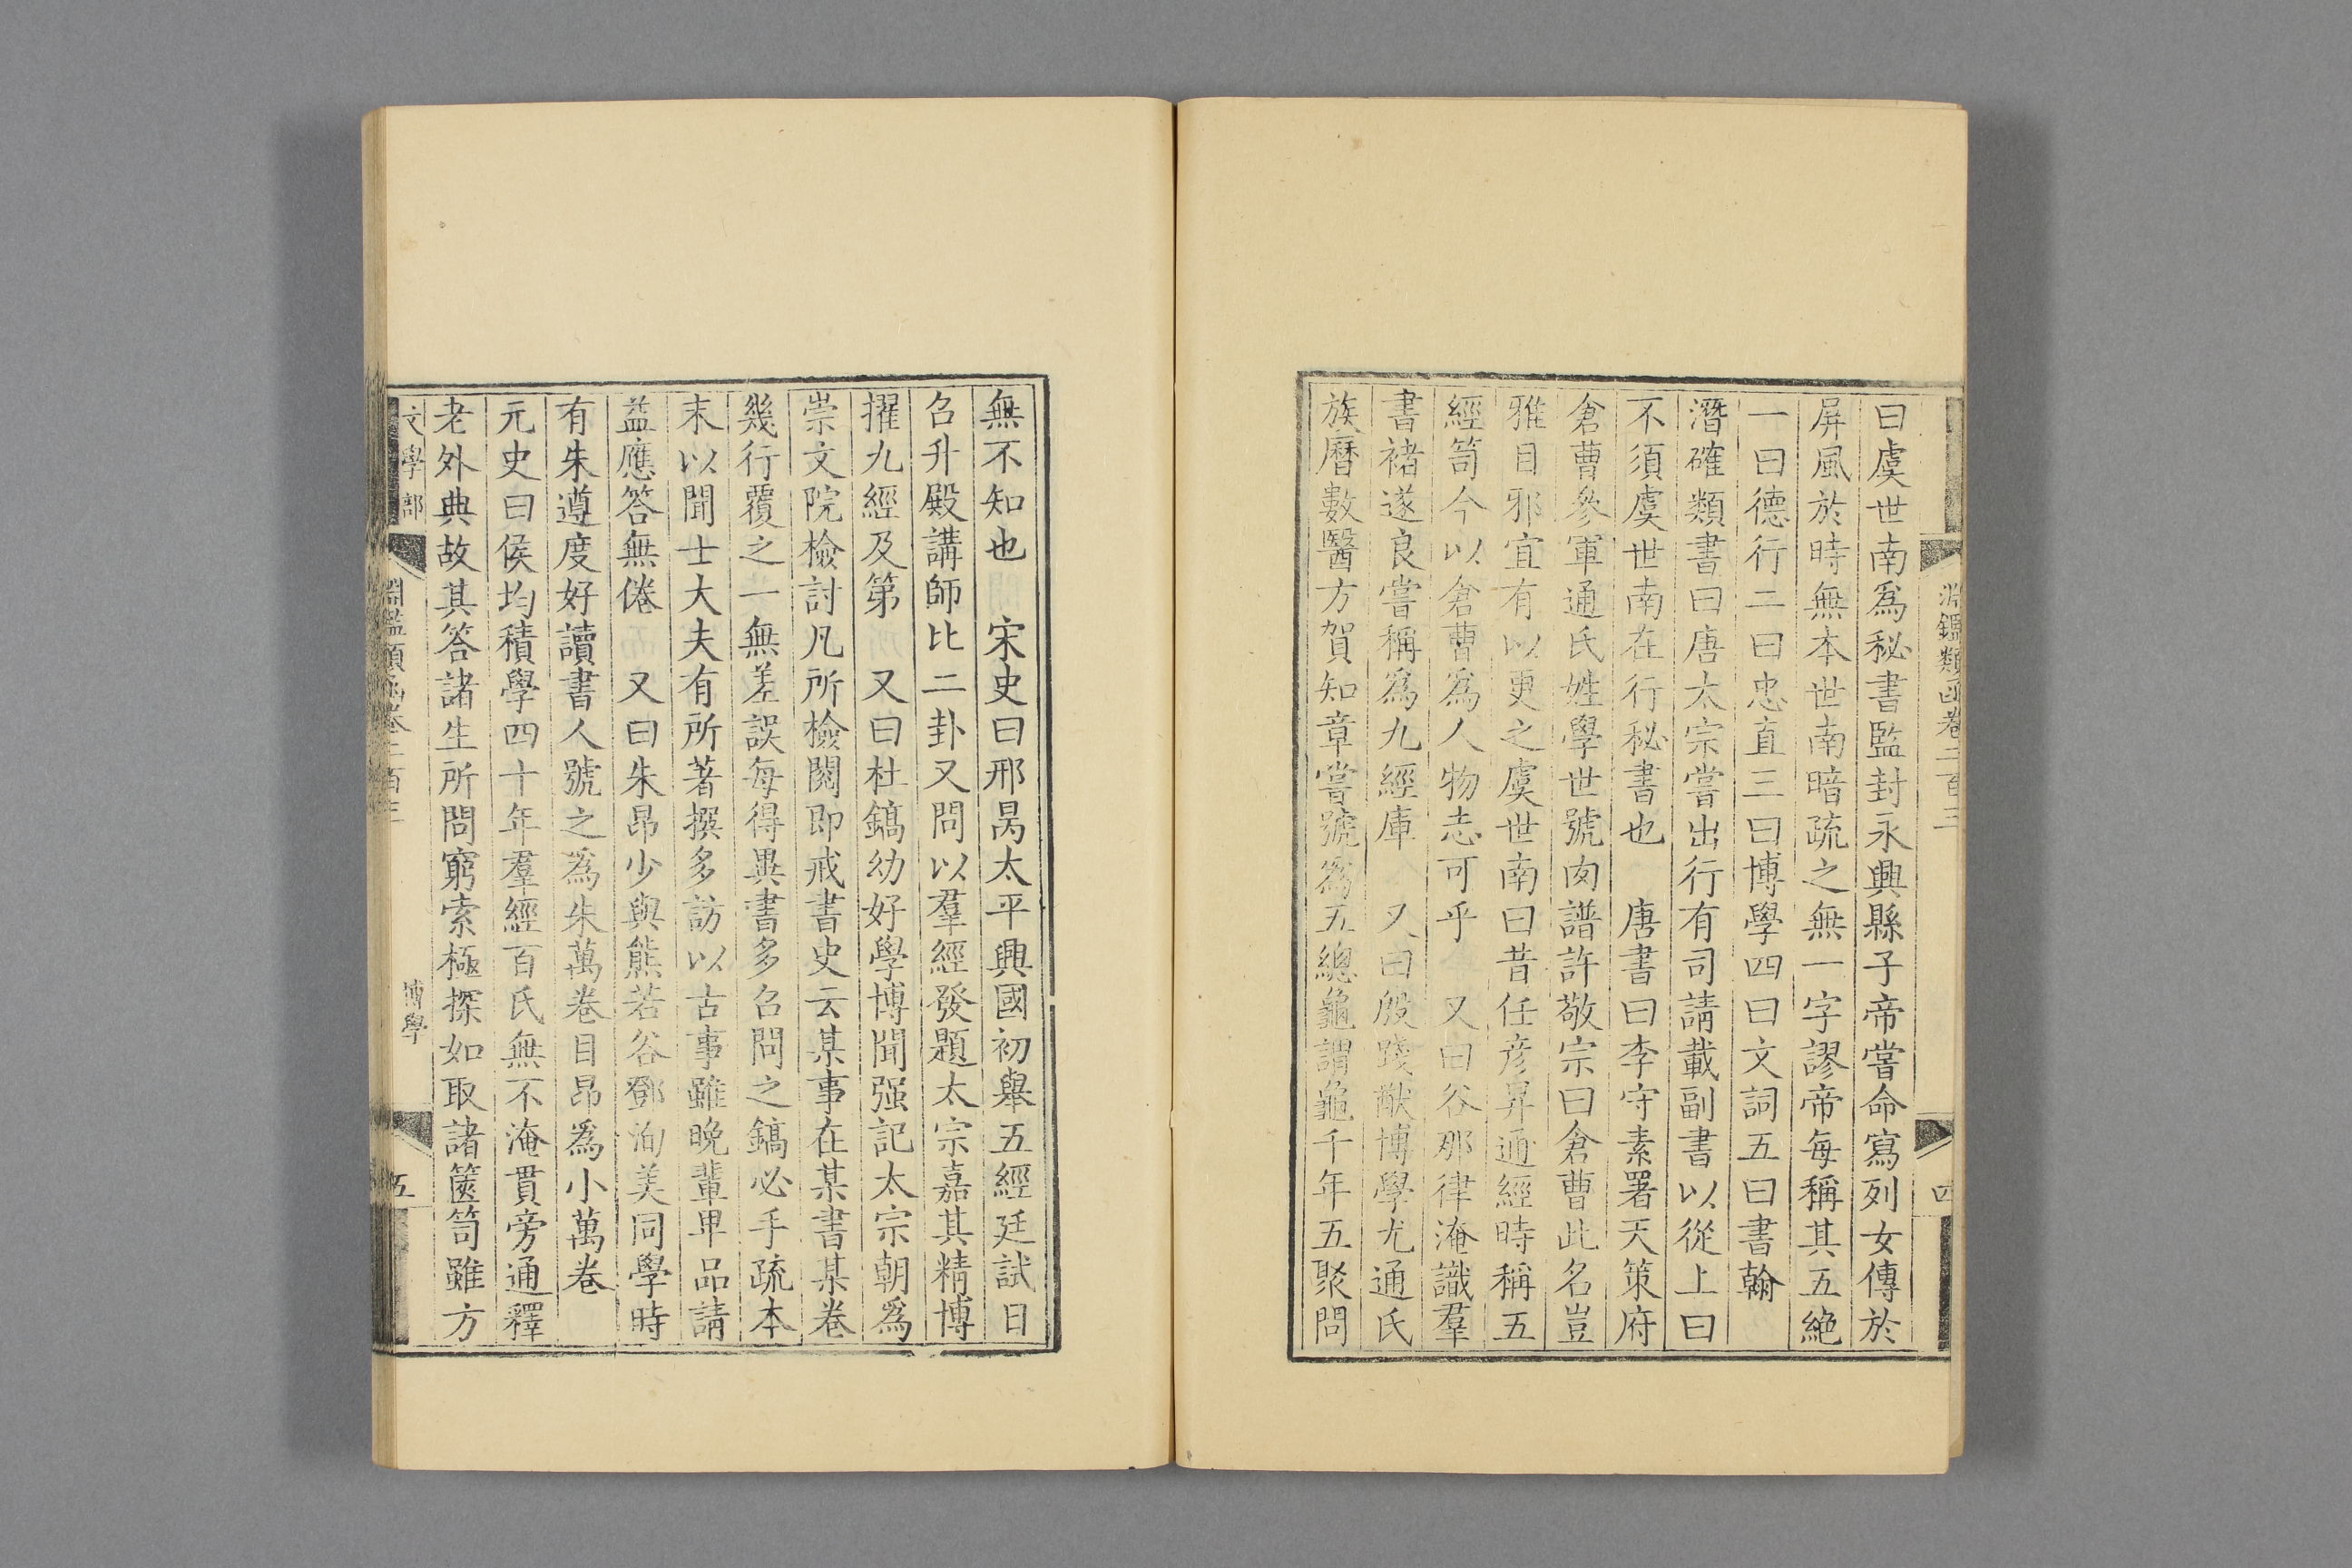 淵鑑類函卷二百三
四
曰虞世南爲秘書監封永興縣子帝嘗命寫列女傳於
屏風於時無本世南暗疏之無一字謬帝每稱其五絶
一曰德行二曰忠直三曰博學四曰文詞五曰書翰
潛確類書曰唐太宗嘗出行有司請載副書以從上曰
不須虞世南在行秘書也　唐書曰李守素署天策府
倉曹參軍通氏姓學世號肉譜許敬宗曰倉曹此名豈
雅目邪宜有以更之虞世南曰昔任彥昇通經時稱五
經笥今以倉曹爲人物志可乎　又曰谷那律淹識羣
書褚遂良嘗稱爲九經庫　又曰殷踐猷博學尤通氏
族曆數醫方賀知章嘗號爲五總龜謂龜千年五聚問
無不知也　宋史曰邢昺太平興國初舉五經廷試日
召升殿講師比二卦又問以羣經發題太宗嘉其精博
擢九經及第　又曰杜鎬幼好學博聞强記太宗朝爲
崇文院檢討凡所檢閱即戒書史云某事在某書某卷
幾行覆之一無差誤每得異書多召問之鎬必手疏本
末以聞士大夫有所著撰多訪以古事雖晚輩卑品請
益應答無倦　又曰朱昂少與熊若谷鄧洵美同學時
有朱遵度好讀書人號之爲朱萬卷目昂爲小萬卷
元史曰侯均積學四十年羣經百氏無不淹貫旁通釋
老外典故其答諸生所問窮索極探如取諸篋笥雖方
文學部
淵鑑類函卷二百三
博學
五